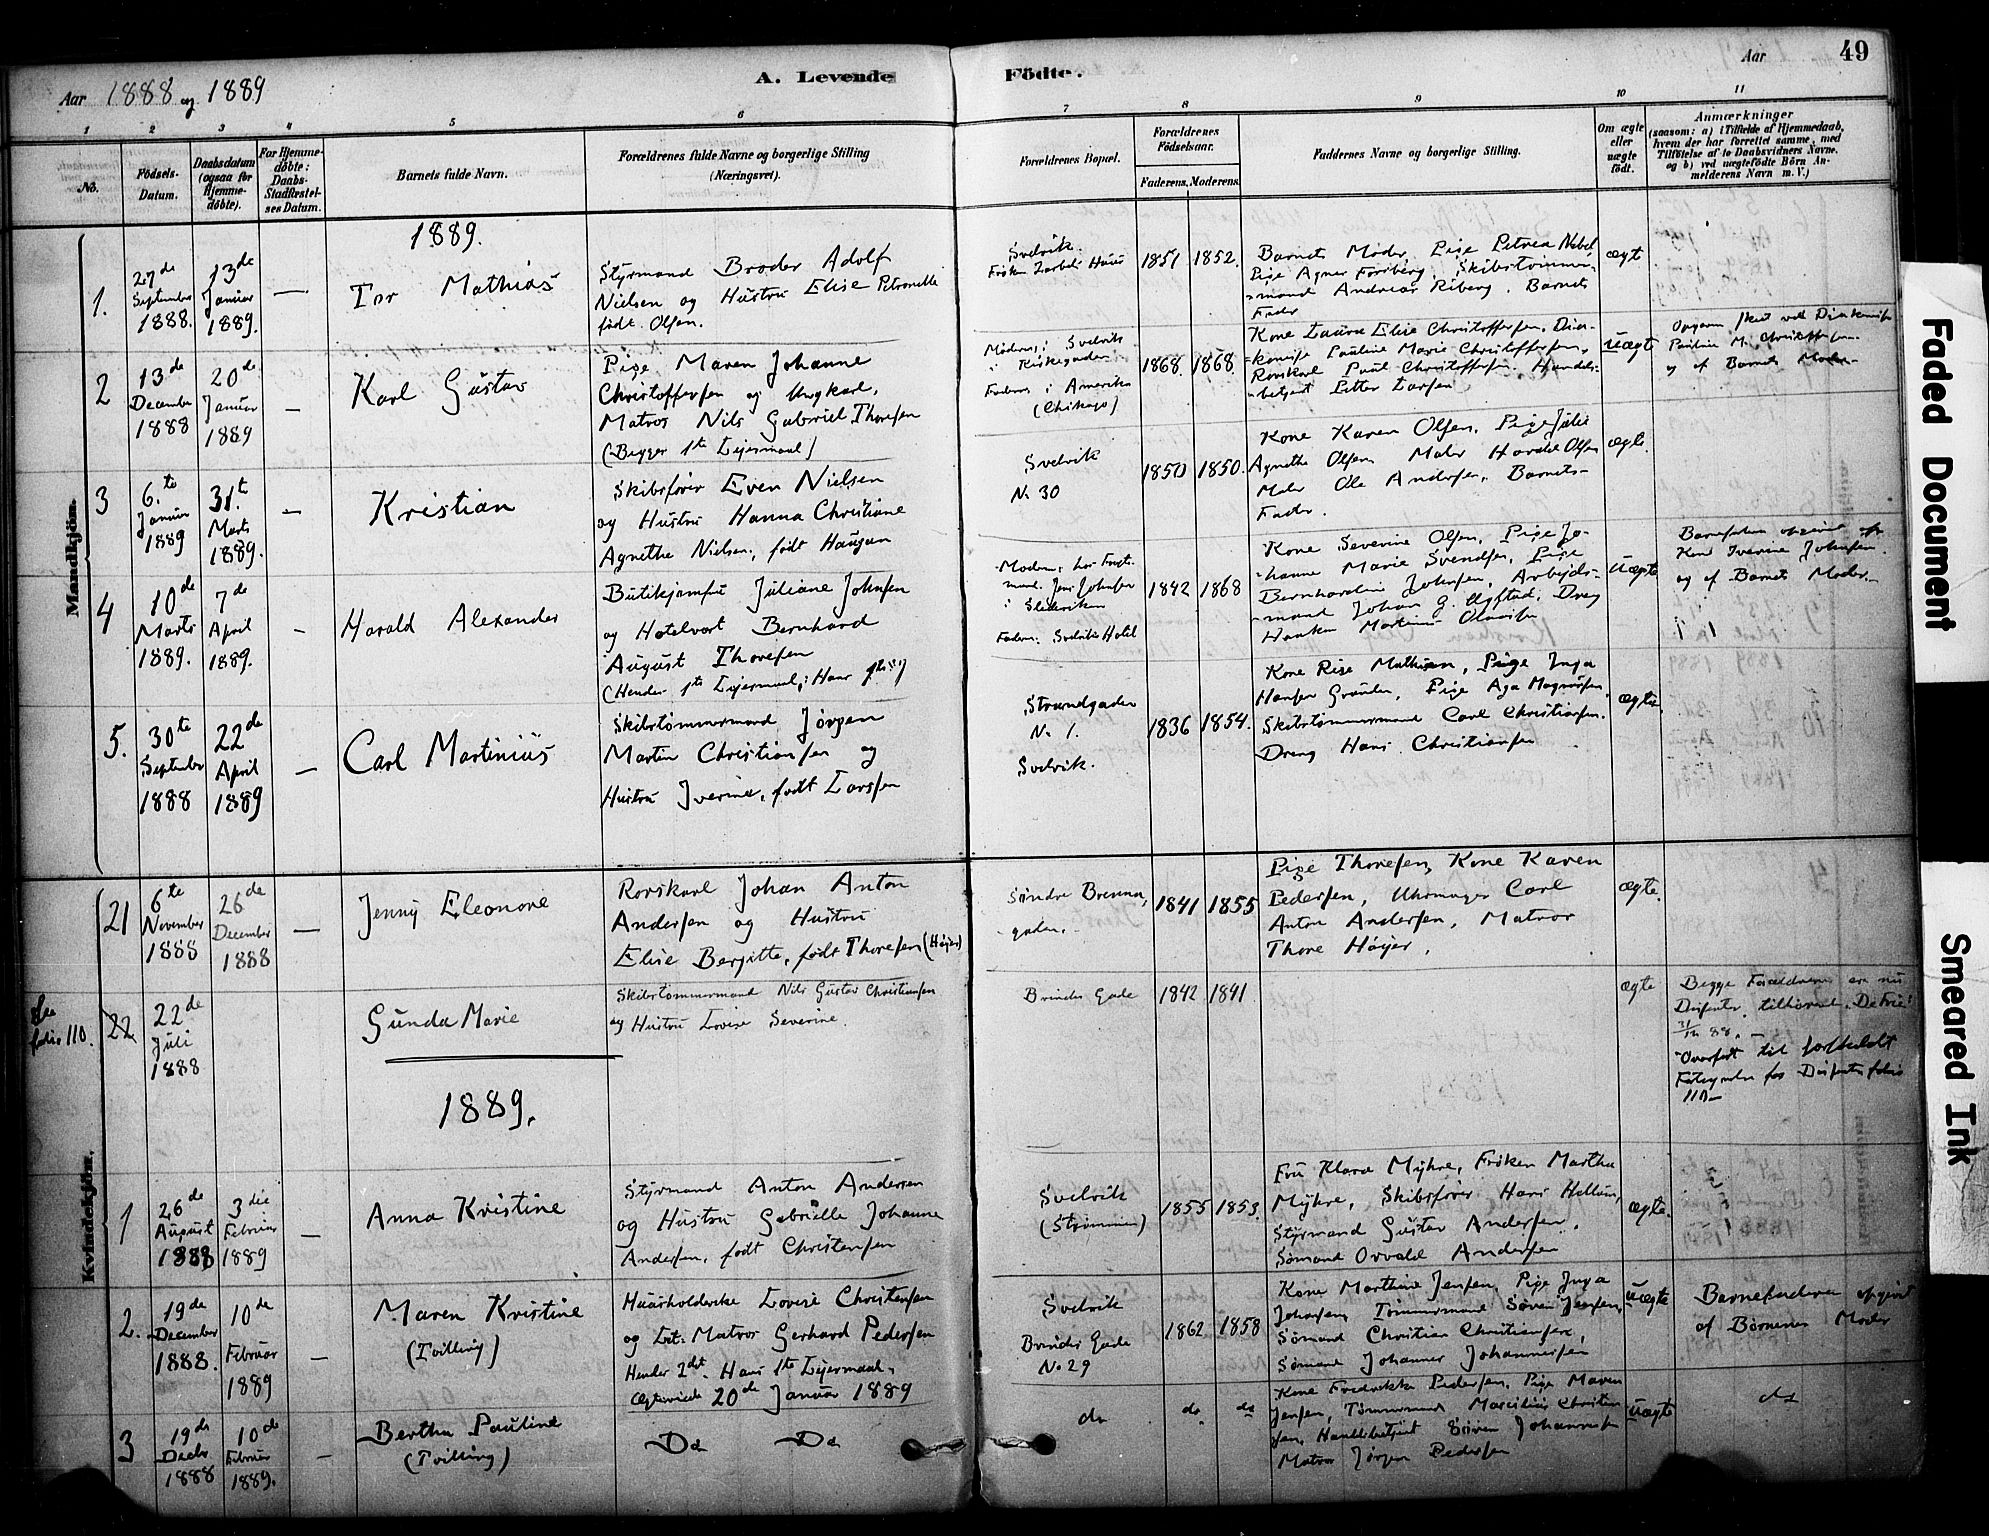 49
Aar 1888 og 1889
A. Levende Födte.
Aar
1 2 3 4 5 6 7 8 9 10 11
No.
Födsels-Datum.
Daabsdatum (ogsaa for Hjemme-döbte).
For Hjemme-döbte: Daabs-Stadfæstel-ses Datum.
Barnets fulde Navn.
Forældrenes fulde Navne og borgerlige Stilling (Næringsvei).
Forældrenes Bopæl.
Forældrenes Födselsaar.
Faderens. Moderens.
Faddernes Navne og borgerlige Stilling.
Om ægte eller uægte födt.
Anmærkninger
(saasom: a) i Tilfælde af Hjemmedaab,
hvem der har forrettet samme, med
Tilföielse af to Daabsvidners Navne,
og b) ved uægtefödte Börn An-
melderens Navn m. V.)
Mandkjön.
1889.
1.
27de September 1888.
13de Januar 1889.
—
Tor Mathias
Styrmand Broder Adolf
Nielsen og Hustru Elise Petronelle
født Olsen.
Svelvik.
1851 1852.
Barnets Moder, Pige Petrea Nebel
Pige Agnes Forsberg, Skibstømmer-
mand Andreas Riberg, Barnets
Fader
ægt
2
13de December 1888
20de Januar 1889
—
Karl Gustav
Pige Maren Johanne
Christoffersen og Ungkarl,
Matros Nils Gabriel Thoresen
(Begges 1te Leiermaal)
Moderen i Svelvik
Faderen i Amerika
(Chikago)
1868. 1868.
Kone Laura Elise Christoffersen, Dia-
konisse Pauline Marie Christoffersen,
Rorskarl Christoffersen, Handels-
betjent Petter Larsen
uægt
Pauline M. Christoffersen
og af Barnets Moder—
3
6.te Januar 1889
31te Marts 1889.
—
Kristian
Skibsfører Even Nielsen
og Hustru Hanna Christiane
Agnethe Nielsen, født Haugan
Svelvik
No 30
1850 1850.
Kone Karen Olsen, Pige Julie
Agnethe Olsen Maler Harald Olsen
Maler Ole Andersen, Barnets-
Fader.
ægte.
4
10de Marts 1889.
7de April 1889.
—
Harald Alexander
Butikjomfru Juliane Johnsen
og Hotelvært Bernhard
August Thoresen
(Hendes 1te Leiermaal; Hans 1te)
Moderen: hos
Jens Johnsen
Faderen: Svelvik Hotel
1842 1868
Kone Severine Olsen, Pige Jo-
hanne Marie Svendsen, Pige
Bernhardine Johnsen, Arbeids-
mand Johan G. Dreng
Haaken Martinius Olaussen
uægte
Barnefaderen opgivet af
Johnsen
og af Barnets Moder.—
5.
30te September 1888
22de April 1889
—
Carl Martinius
Skibstømmermand Jørgen
Martin Christiansen og
Hustru Iverine, født Larssen
Strandgaden
No 1.
Svelvik.
1836 1854.
Kone Rise Mathisen, Pige Inga
Hansen Pige Aga Magnusen,
Skibstømmermand Carl Christiansen.
Dreng Hans Christiansen
ægte.
Kvindekjön.
21
6te November 1888
26de December 1888
—
Jenny Eleonore
Rorskarl Johan Anton
Andersen og Hustru
Elise Bergitte, født Thoresen (Høyer)
Søndre Brenna-
gaden.
1841 1855
Pige Thoresen, Kone Karen
Pedersen, Uhrmager Carl
Anton Andersen, Matros
Thore Høyer.
ægte.
See folio 110.
22
22de Juli 1888
Gunda Marie
Skibstømmermand Nils Gustav Christiansen
og Hustru Lovise Severine.
Brinchs Gade
1842 1841
ægte
Begge Forældrene ere nu
Dissenter, tilhørende
88.—
Overført til
for Dissenter folio
110—
1889.
1
26de August 1888
3die Februar 1889
—
Anna Kristine
Styrmand Anton Andersen
og Hustru Gabrielle Johanne
Andersen, født Christensen
Svelvik
(Strømmen)
1855 1853.
Fru Klara Myhre, Frøken Martha
Myhre, Skibsfører Hans Hellum,
Styrmand Gustav Andersen,
Sømand Osvald Andersen
ægte.
2.
19de December 1888.
10de Februar 1889
—
Maren Kristine
(Tvilling)
Huusholderske Lovise Christensen
og Matros Gerhard Pedersen
Hendes 2det. Hans 1te Leiermaal.
20de Januar 1889
Svelvik
Brinchs Gade
No 29
1862 1858
Kone Marthine Jensen, Pige Inga
Johansen, Tømmermand Søren Jensen,
Sømand Christian Christiansen,
Sømand Johannes Johannessen
uægte
Barnefaderen opgivet
af Børnenes Moder
3
19de Decbr 1888
10de Februar 1889.
—
Bertha Pauline
(Tvilling)
Do Do
do
do do
Kone Fredrikke Pedersen, Pige Maren
Jensen, Tømmermand Marcelius Christen-
sen, Handelsbetjent Søren Johannesen
Matros Jørgen Pedersen
uægte
do
Faded Document
Smeared Ink